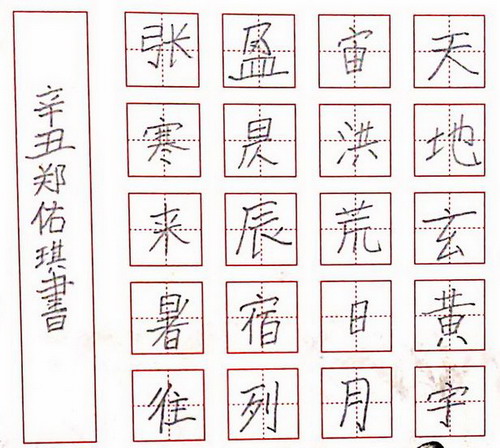 天地玄黄宇
宙洪荒日月
盈昃辰宿列
张寒来暑往
辛丑郑佑琪書